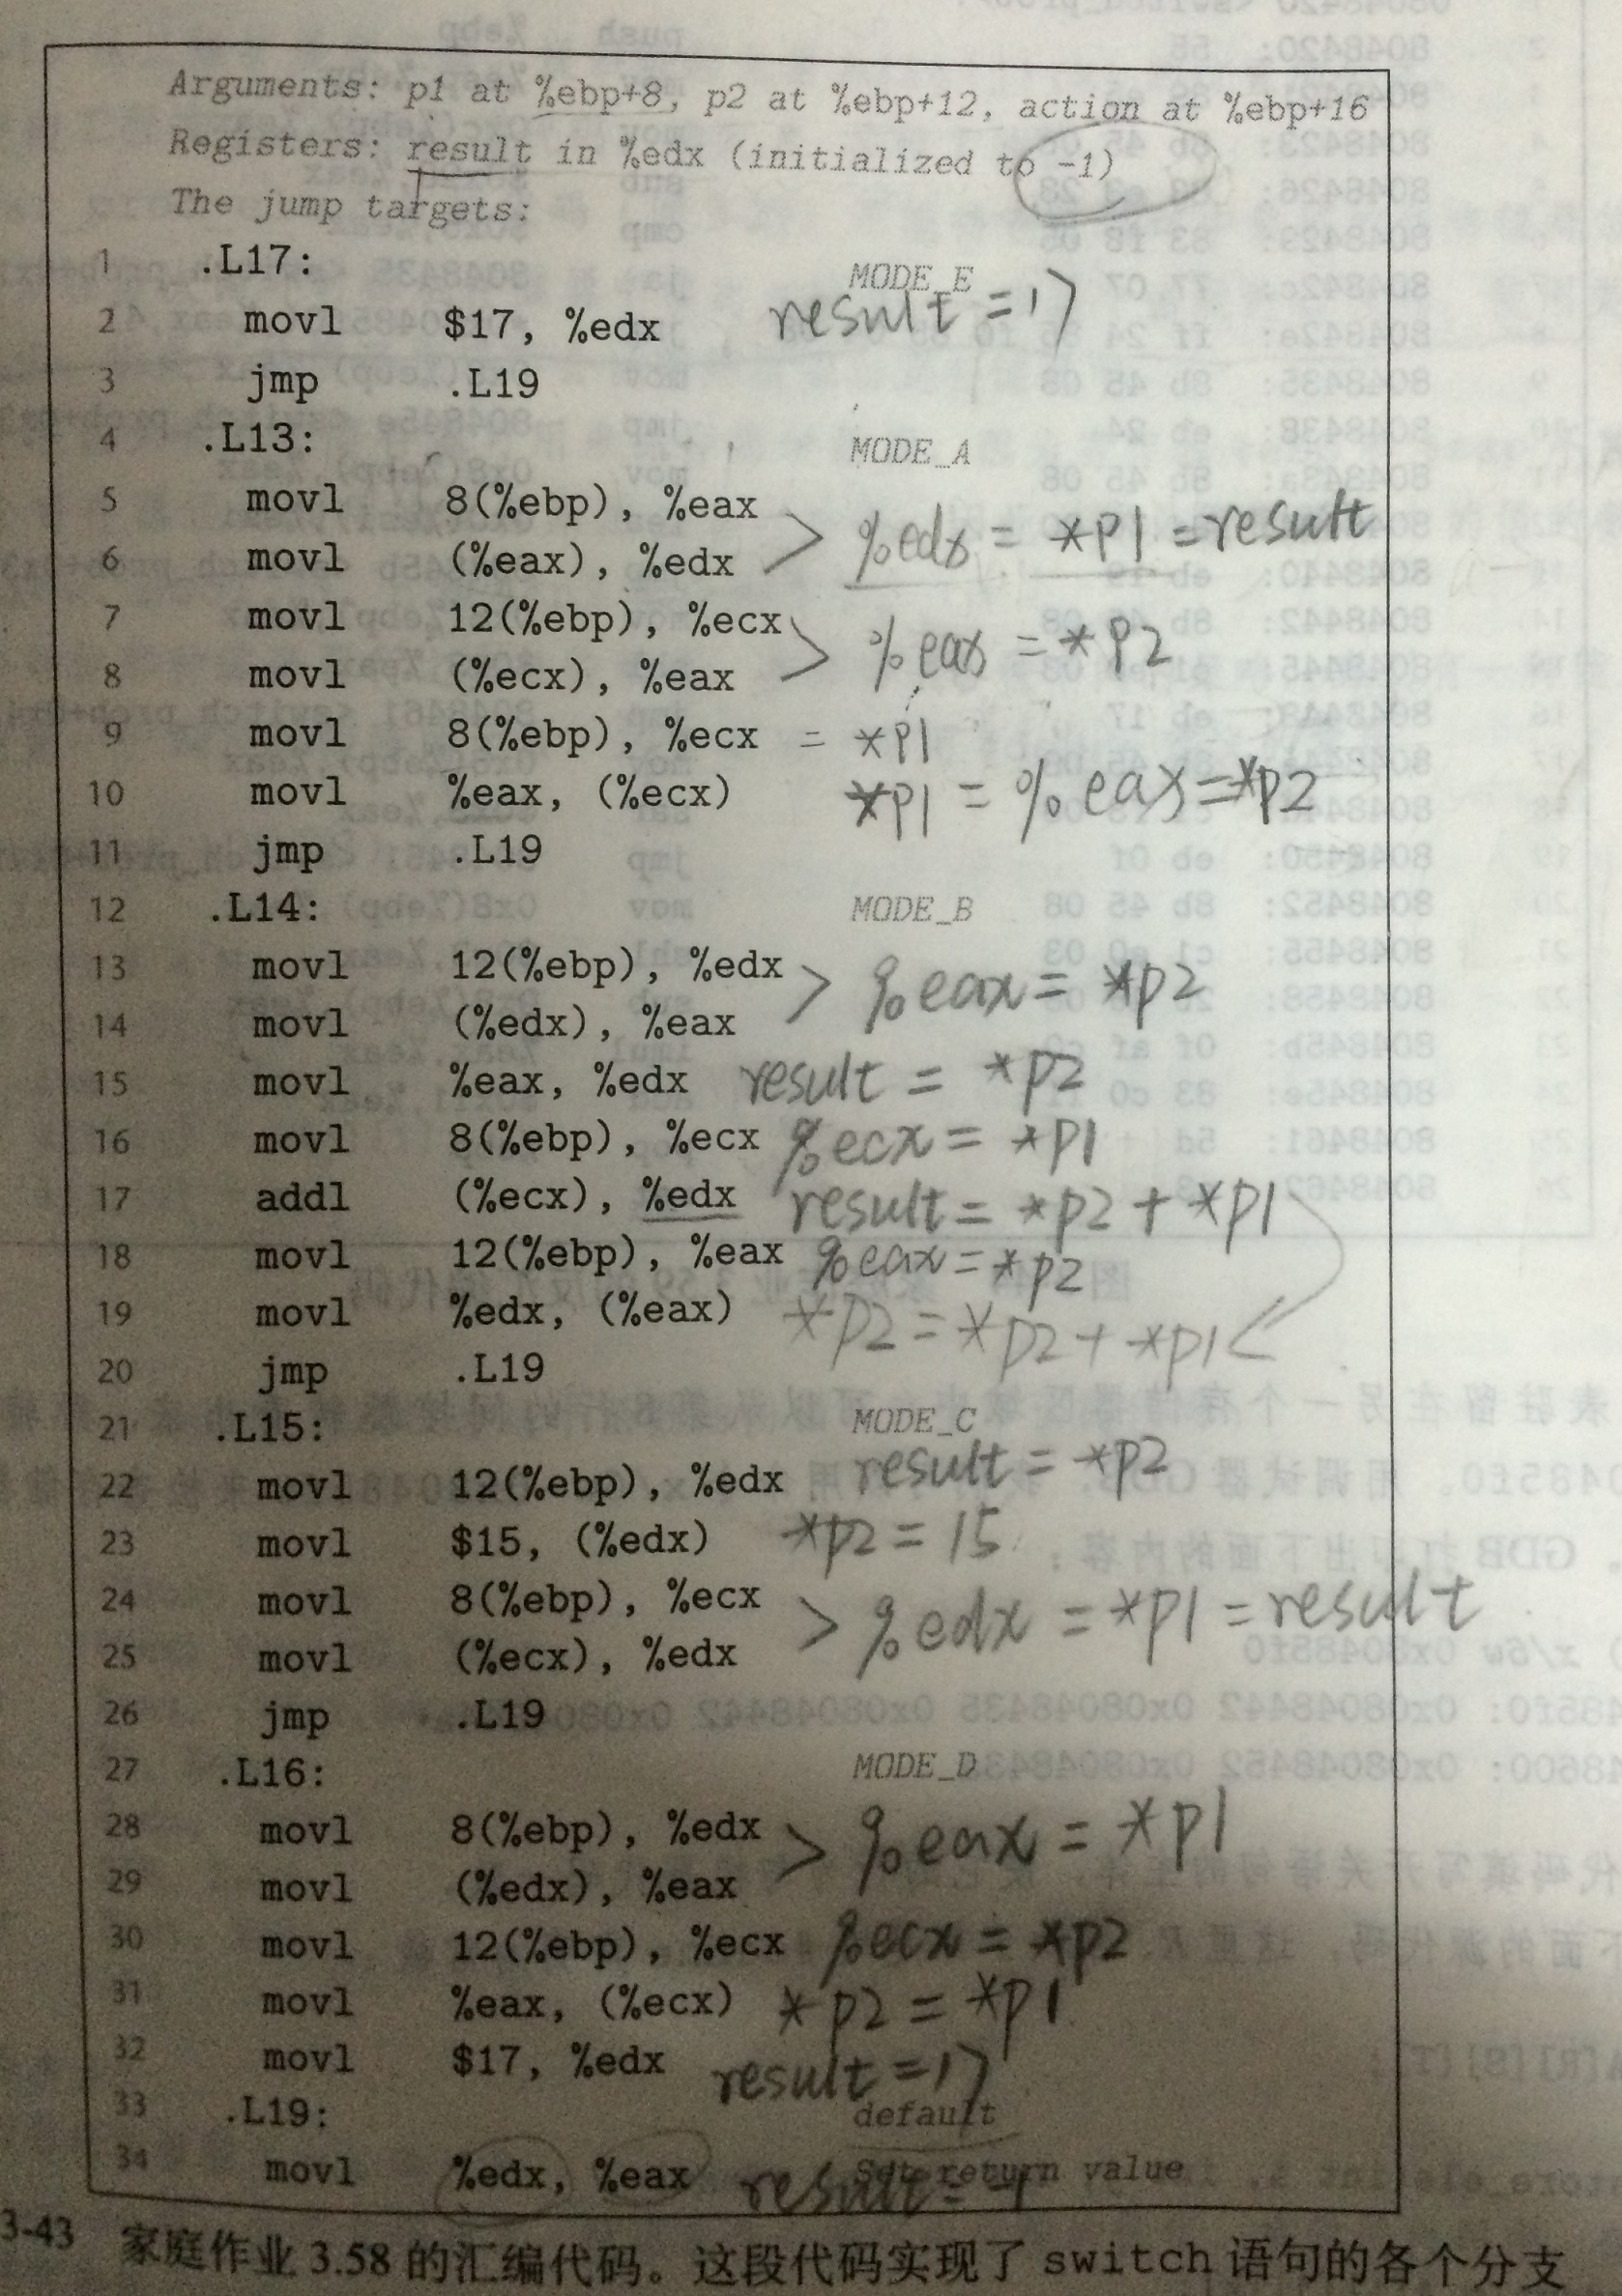 Arguments: p1 at %ebp+8, p2 at %ebp+12, action at %ebp+16
Registers: result in %edx (initialized to -1)
The jump targets:
1 .L17: MODE_E
2 movl $17, %edx result = 17
3 jmp .L19
4 .L13: MODE_A
5 movl 8(%ebp), %eax
6 movl (%eax), %edx > %edx = *p1 = result
7 movl 12(%ebp), %ecx
8 movl (%ecx), %eax > %eax = *p2
9 movl 8(%ebp), %ecx = *p1
10 movl %eax, (%ecx) *p1 = %eax = *p2
11 jmp .L19
12 .L14: MODE_B
13 movl 12(%ebp), %edx
14 movl (%edx), %eax > %eax = *p2
15 movl %eax, %edx result = *p2
16 movl 8(%ebp), %ecx %ecx = *p1
17 addl (%ecx), %edx result = *p2 + *p1
18 movl 12(%ebp), %eax %eax = *p2
19 movl %edx, (%eax) *p2 = *p2 + *p1
20 jmp .L19
21 .L15: MODE_C
22 movl 12(%ebp), %edx result = *p2
23 movl $15, (%edx) *p2 = 15
24 movl 8(%ebp), %ecx
25 movl (%ecx), %edx > %edx = *p1 = result
26 jmp .L19
27 .L16: MODE_D
28 movl 8(%ebp), %edx
29 movl (%edx), %eax > %eax = *p1
30 movl 12(%ebp), %ecx %ecx = *p2
31 movl %eax, (%ecx) *p2 = *p1
32 movl $17, %edx result = 17
33 .L19: default
34 movl %edx, %eax Set return value result = -1
3-43 家庭作业 3.58 的汇编代码。这段代码实现了 switch 语句的各个分支